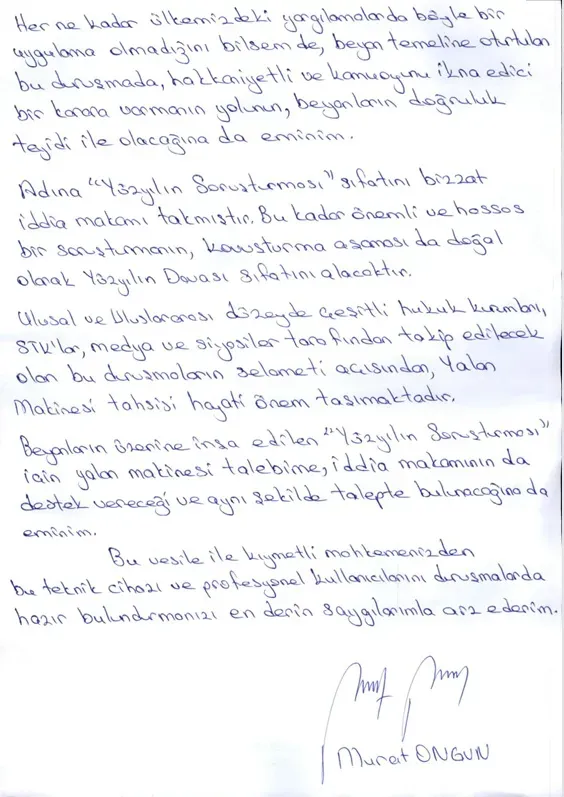 Her ne kadar ülkemizdeki yargılamalarda böyle bir
uygulama olmadığını bilsem de, beyan temeline oturtulan
bu duruşmada, hakkaniyetli ve kamuoyunu ikna edici
bir karara varmanın yolunun, beyanların doğruluk
teyidi ile olacağına da eminim.
Adına "Yüzyılın Soruşturması" sıfatını bizzat
iddia makamı takmıştır. Bu kadar önemli ve hassas
bir soruşturmanın, kovuşturma aşaması da doğal
olarak Yüzyılın Davası sıfatını alacaktır.
Ulusal ve Uluslararası düzeyde çeşitli hukuk kurumları,
STK'lar, medya ve siyasiler tarafından takip edilecek
olan bu duruşmaların selameti açısından, Yalan
Makinesi tahsisi hayati önem taşımaktadır.
Beyanların üzerine inşa edilen "Yüzyılın Soruşturması"
için yalan makinesi talebime, iddia makamının da
destek vereceği ve aynı şekilde talepte bulunacağına da
eminim.
Bu vesile ile kıymetli mahkemenizden
bu teknik cihazı ve profesyonel kullanıcılarını duruşmalarda
hazır bulundurmanızı en derin saygılarımla arz ederim.
Murat ONGUN